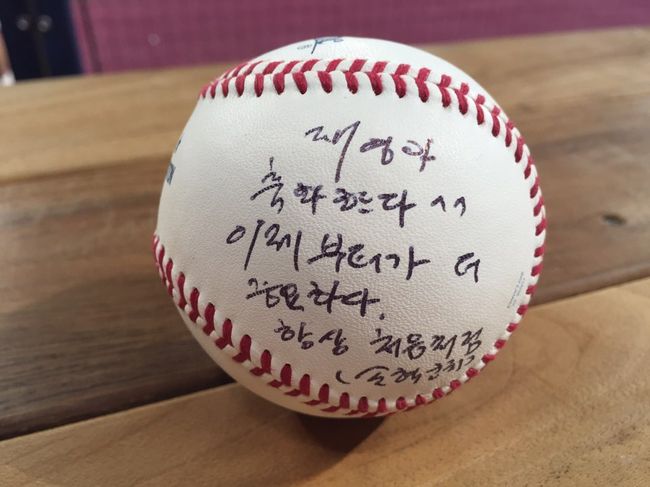 재영아
축하한다 ^^
이제부터가 더
중요하다.
항상 처음처럼